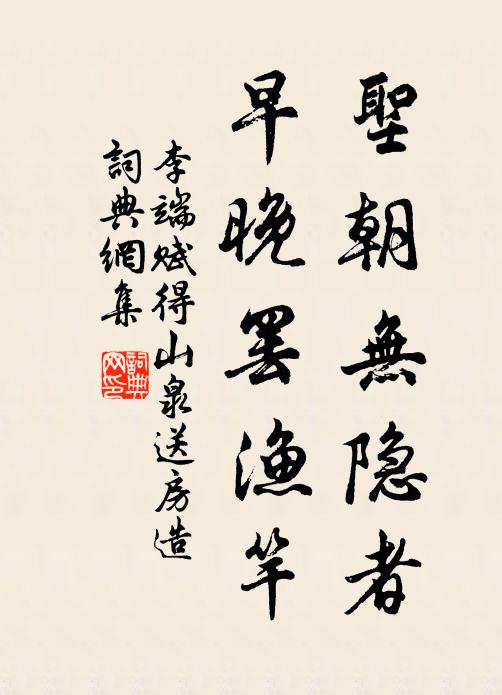 聖朝無隐者
早晚罢漁竿
李端赋得山泉送房造
詞典網集
詞典
网印